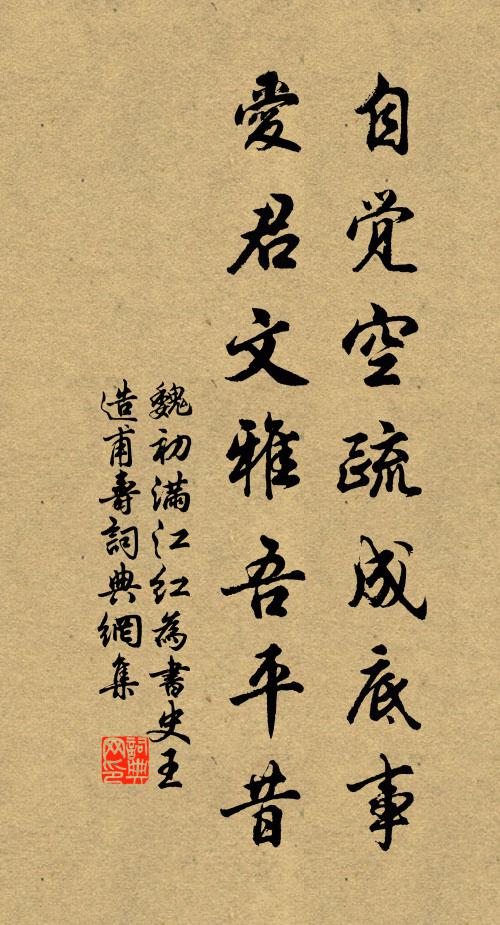 自觉空疏成底事
愛君文雅吾平昔
魏初满江红為書史王
造甫壽詞典網集
詞典
网印